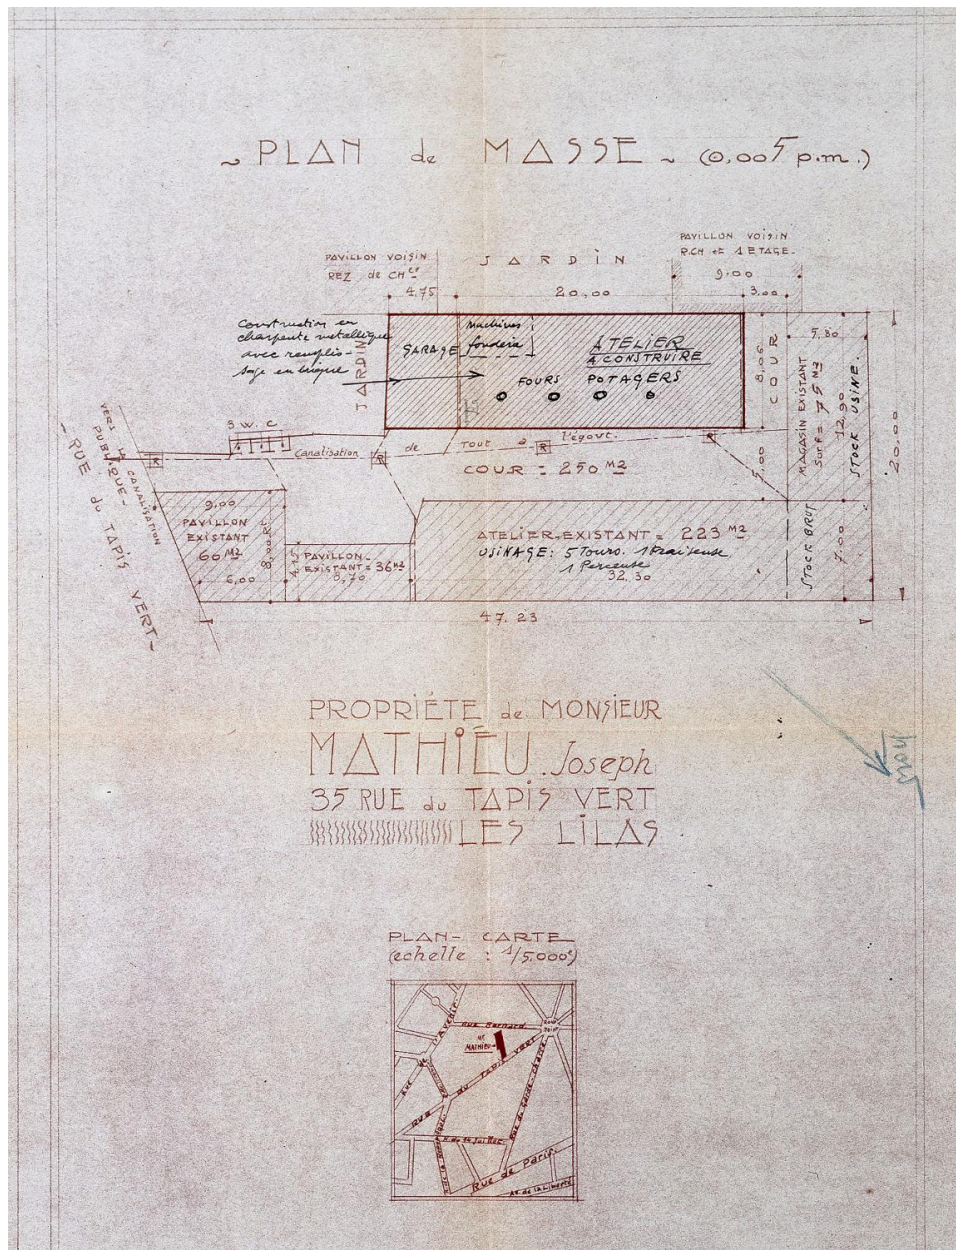 ~ PLAN de MASSE ~ (0,005 p.m.)
PAVILLON VOISIN
REZ de CHée
JARDIN
PAVILLON VOISIN
R.CH et 1 ETAGE.
9.00
4,75
20,00
3.00
Construction en
charpente métallique
avec remplis-
sage en brique
JARDIN
GARAGE
machines
fonderie
ATELIER
A CONSTRUIRE
FOURS POTAGERS
8,06
COUR
5,80
MAGASIN EXISTANT
Surf = 75 M2
12,90
STOCK USINE.
20,00
3 W.C
Canalisation de Tout à l'égout.
R
R
R
R
COUR = 250 M2
5,00
VERS LA CANALISATION
PUBLIQUE-
- RUE du TAPIS VERT-
9,00
PAVILLON
EXISTANT
60 M2
6,00
4,15
PAVILLON-
EXISTANT = 36 M2
8,70
ATELIER-EXISTANT = 223 M2
USINAGE: 5 Tours. 1 Fraiseuse
1 Perceuse
32,30
STOCK BRUT
7,00
47,23
PROPRIÉTE de MONSIEUR
MATHIEU. Joseph
35 RUE du TAPIS VERT
LES LILAS
Nord
PLAN- CARTE
(echelle : 1/5.000e)
Rue de l'Avenir
Rue Bernard
Rond
Point
Mr
MATHIEU
Rue du Tapis vert
Rue du Garde Chasse
R. du 14 Juillet
Rue de Paris.
Av. de la Liberté